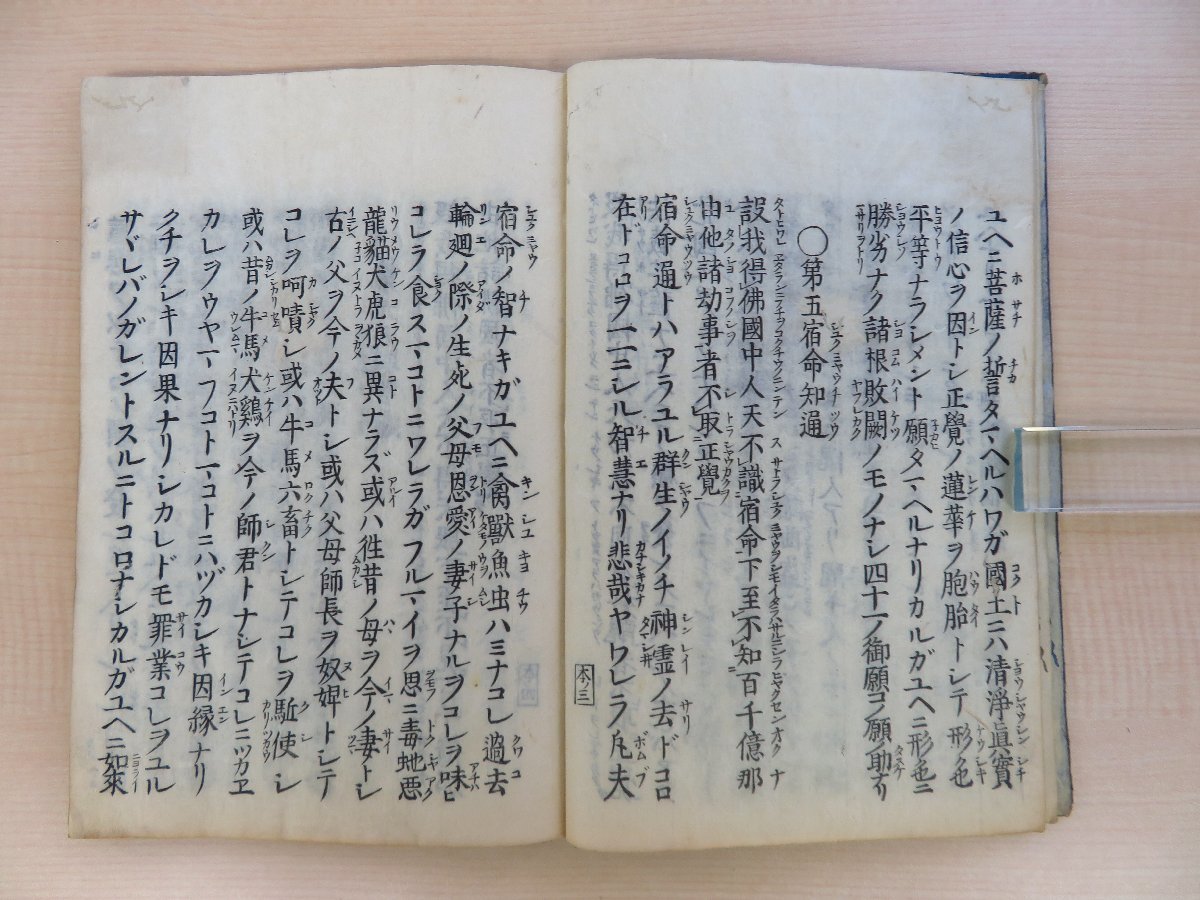 ユヘニ菩薩ノ誓タマヘルハワガ國土ニハ清淨眞實
ノ信心ヲ因トシ正覺ノ蓮華ヲ胞胎トシテ形ク也
平等ナラシメント願タマヘルナリカルガユヘニ形也ニ
勝劣ナク諸根敗闕ノモノナシ四十一ノ御願コノ願ノ助ナリ
○第五宿命知通
設我得佛國中人天不識宿命下至不知百千億那
由他諸劫事者不取正覺
宿命通トハアラユル群生ノイノチ神霊ノ去ドコロ
在ドコロヲ一一ニシル智慧ナリ悲哉ヤワレラ凡夫
本三
宿命ノ智ナキガユヘニ禽獸魚虫ハミナコレ過去
輪廻ノ際ノ生死ノ父母恩愛ノ妻子ナルヲコレヲ味ヒ
コレラ食スマコトニワレラガフルマイヲ思ニ毒虵悪
龍猫犬虎狼ニ異ナラズ或ハ徃昔ノ母ヲ今ノ妻トシ
古ノ父ヲ今ノ夫トシ或ハ父母師長ヲ奴婢トシテ
コレヲ呵嘖シ或ハ牛馬六畜トシテコレヲ駈使シ
或ハ昔ノ牛馬犬鷄ヲ今ノ師君トナシテコレニツカヱ
カレヲウヤマフコトマコトニハヅカシキ因縁ナリ
クチヲシキ因果ナリシカレドモ罪業コレヲユル
サヾレバノガレントスルニトコロナシカルガユヘニ如來